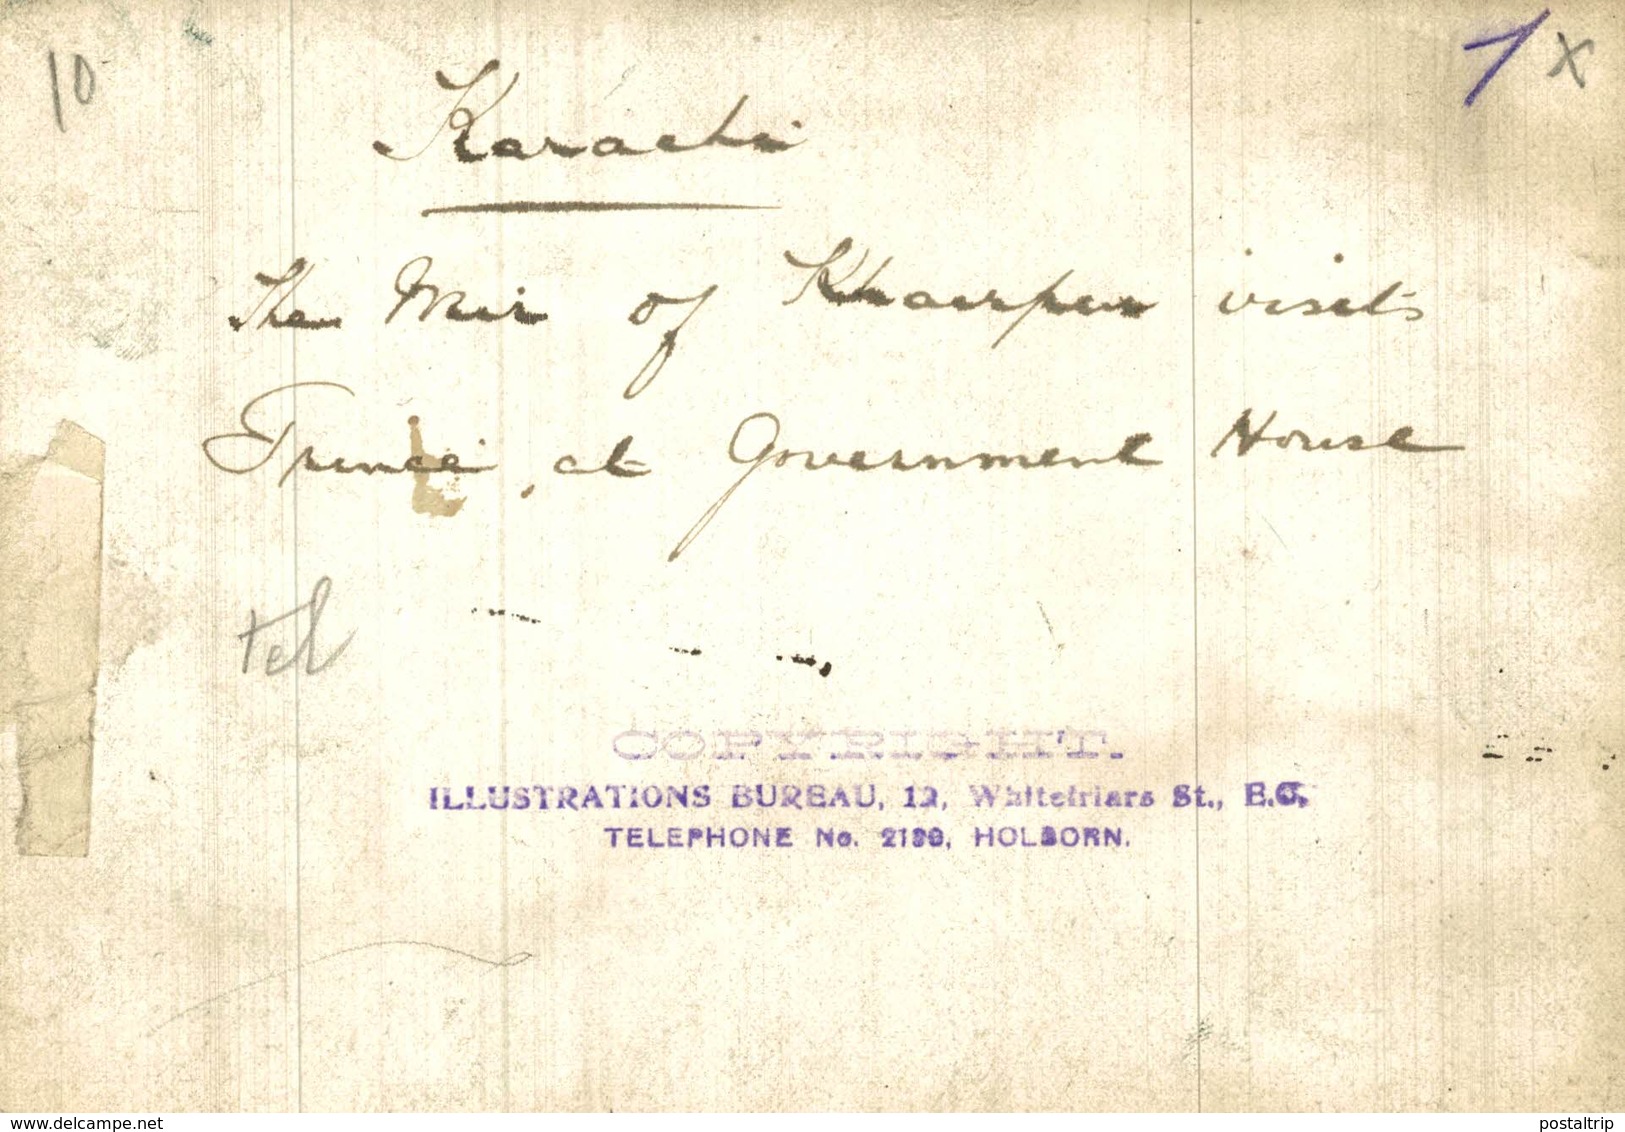 10
1 X
Karachi
The Meir of Khaerpur visits
Prince, at Government House
tel
COPYRIGHT.
ILLUSTRATIONS BUREAU, 12, Whitefriars St., E.C.
TELEPHONE No. HOLBORN.
delcampe.net
postaltrip